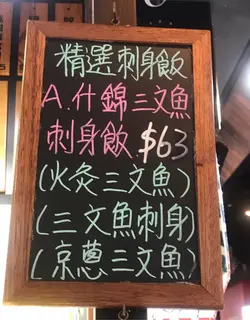 精選刺身飯
A.什錦三文魚
刺身飯.$63
(火灸三文魚)
(三文魚刺身)
(京蔥三文魚)